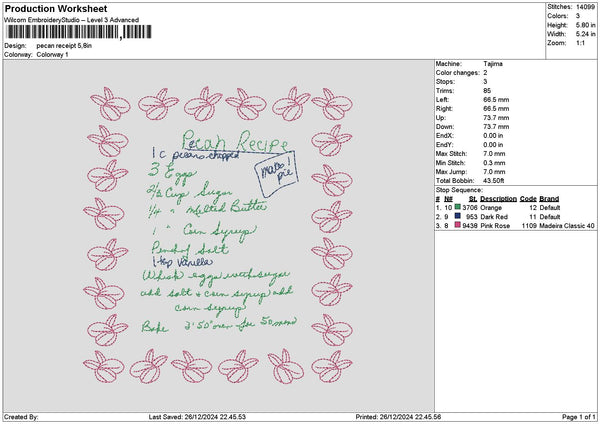 Production Worksheet
Wilcom EmbroideryStudio – Level 3 Advanced
Stitches: 14099
Colors: 3
Height: 5.80 in
Width: 5.24 in
Zoom: 1:1
Design: pecan receipt 5,8in
Colorway: Colorway 1
Pecan Recipe
1 c pecans chopped
3 Eggs
makes 1
pie
2/3 Cup Sugar
1/4 " Melted Butter
1 " Corn Syrup
Pinch of Salt
1 tsp Vanilla
Whisk eggs with sugar
add salt + corn syrup add
corn syrup
Bake 350° oven for 50 mins
Machine: Tajima
Color changes: 2
Stops: 3
Trims: 85
Left: 66.5 mm
Right: 66.5 mm
Up: 73.7 mm
Down: 73.7 mm
EndX: 0.00 in
EndY: 0.00 in
Max Stitch: 7.0 mm
Min Stitch: 0.3 mm
Max Jump: 7.0 mm
Total Bobbin: 43.50ft
Stop Sequence:
# N# St. Description Code Brand
1. 10 3706 Orange 12 Default
2. 9 953 Dark Red 11 Default
3. 8 9438 Pink Rose 1109 Madeira Classic 40
Created By:
Last Saved: 26/12/2024 22.45.53
Printed: 26/12/2024 22.45.56
Page 1 of 1